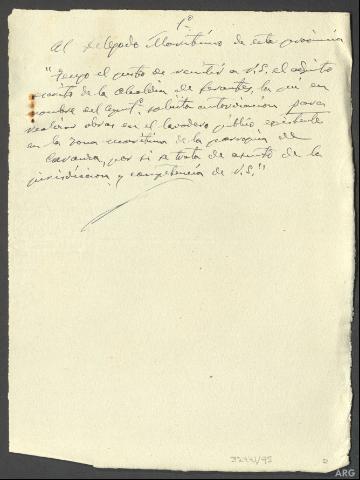 1º
Al Delegado Marítimo de esta provincia
"Tengo el gusto de remitir a V.S. el adjunto
escrito de la alcaldia de Serantes, la que en
nombre del Ayunt.º solicita autorizacion para
realizar obras en el lavadero público existente
en la zona maritima de la parroquia de
Caranza, por si se trata de asunto de la
jurisdiccion y competencia de V.S."
32441/95
ARG